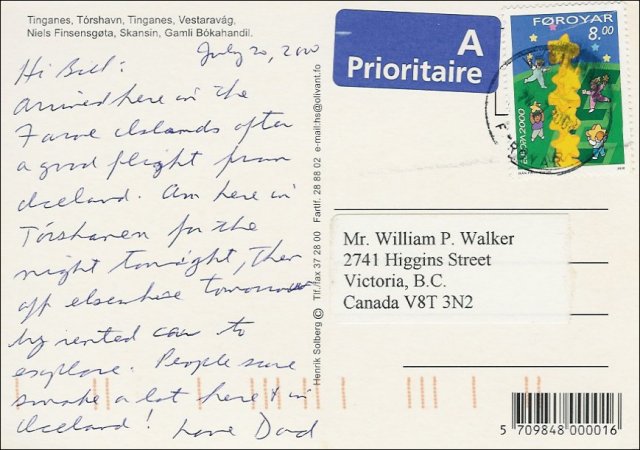 Tinganes, Tórshavn, Tinganes, Vestaravág,
Niels Finsensgøta, Skansin, Gamli Bókahandil.
July 20, 2000
Hi Bill:
arrived here in the
Faroe Islands after
a good flight from
Iceland. Am here in
Tórshaven for the
night tonight, then
off elsewhere tomorrow
by rented car to
explore. People sure
smoke a lot here & in
Iceland! Love Dad
Henrik Solberg © Tlf./fax 37 28 00 Fartlf. 28 88 02 e-mail:hs@olivant.fo
A
Prioritaire
FØROYAR
8.00
EUROPA 2000
Mr. William P. Walker
2741 Higgins Street
Victoria, B.C.
Canada V8T 3N2
5 709848 000016